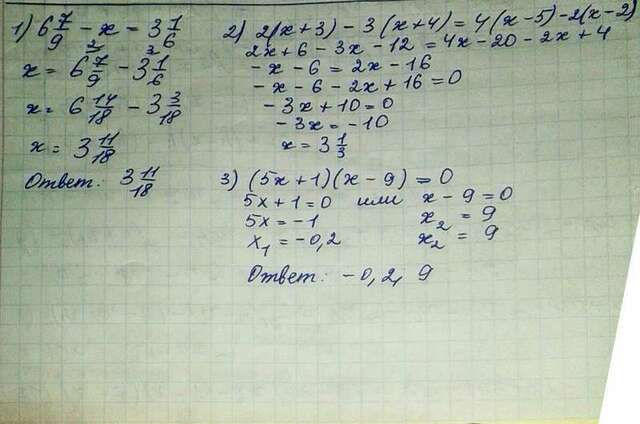 1) 6 7/9 - x = 3 1/6
x = 6 7/9 - 3 1/6
x = 6 14/18 - 3 3/18
x = 3 11/18
Ответ: 3 11/18
2) 2(x+3) - 3(x+4) = 4(x-5) - 2(x-2)
2x + 6 - 3x - 12 = 4x - 20 - 2x + 4
-x - 6 = 2x - 16
-x - 6 - 2x + 16 = 0
-3x + 10 = 0
-3x = -10
x = 3 1/3
3) (5x+1)(x-9) = 0
5x + 1 = 0 или x - 9 = 0
5x = -1 x₂ = 9
x₁ = -0,2 x₂ = 9
Ответ: -0,2, 9